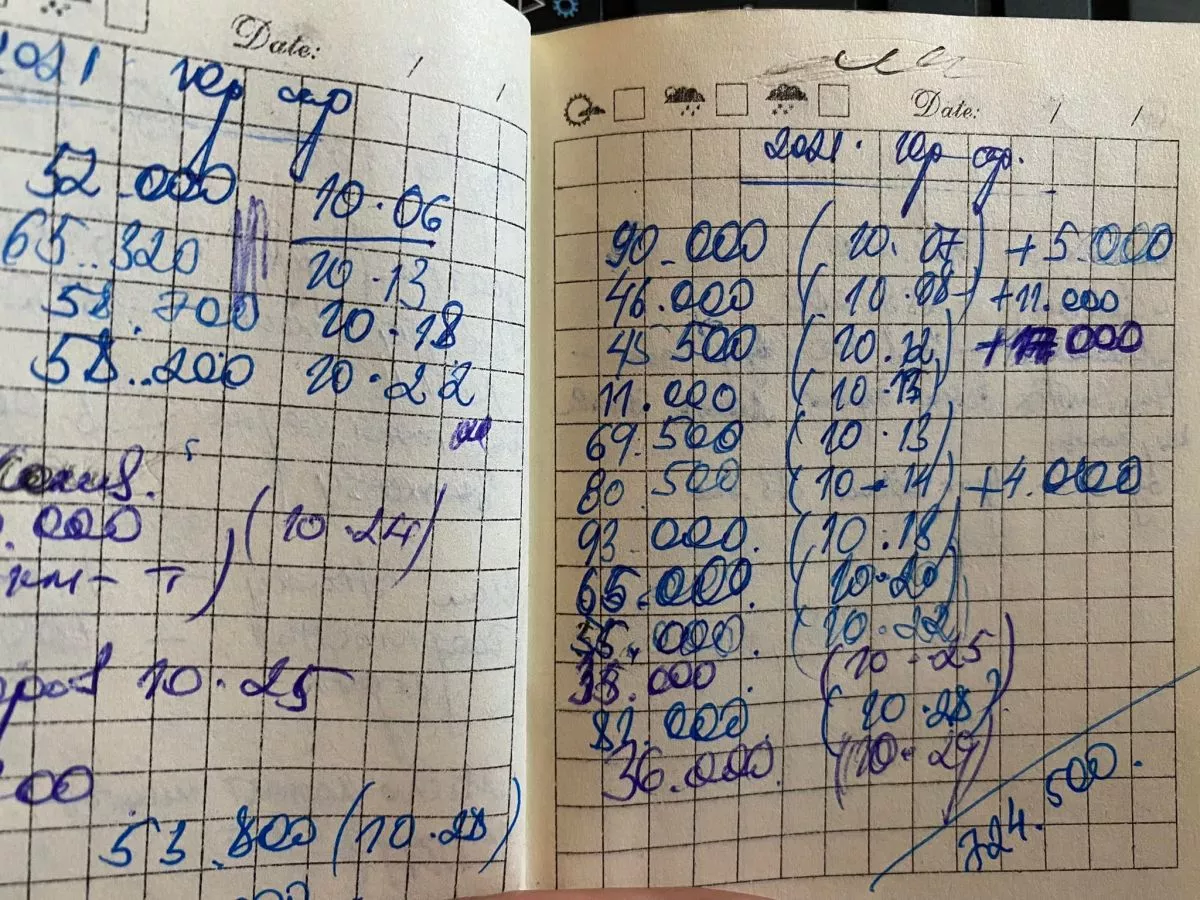 Date: / /
2021 10р сар
52.000 10.06
65..320 10.13
58.700 10.18
58..200 10.22
.000 (10.24)
10.25
00
53.800 (10.28)
Date: / /
2021. 10р сар.
90.000 (10.07) +5.000
46.000 (10.08) +11.000
45 500 (10.12) +17 000
11.000 (10.13)
69.500 (10.13)
80.500 (10-14) +4.000
93.000. (10.18)
65.000. (10.20)
35.000. (10.22)
35.000. (10.25)
81.000. (10.28)
36.000. (10.29)
724.500.